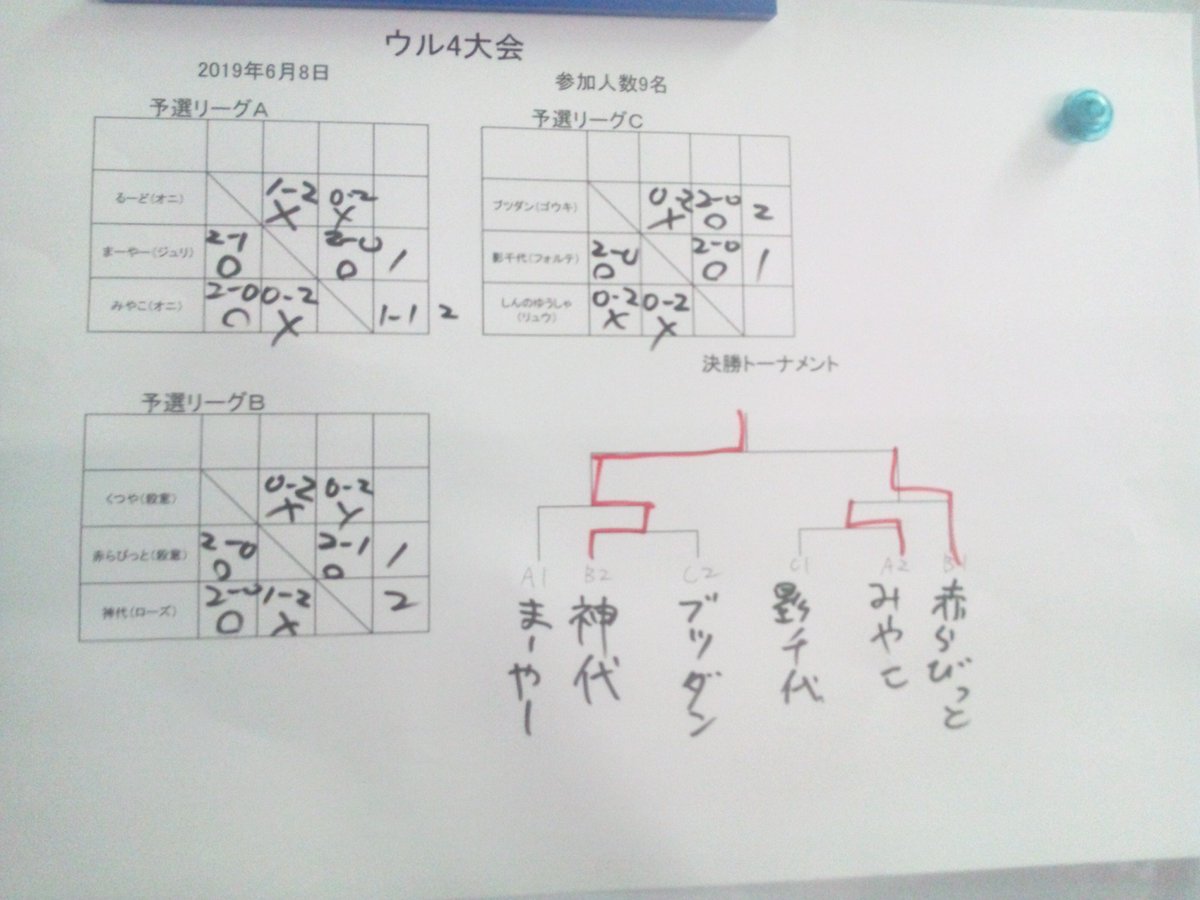 ウル4大会
2019年6月8日
参加人数9名
予選リーグA
るーど(オニ) 1-2 X 0-2 X
まーやー(ジュリ) 2-1 O 2-0 O 1
みやこ(オニ) 2-0 O 0-2 X 1-1 2
予選リーグC
ブツダン(ゴウキ) 0-2 X 2-0 O 2
影千代(フォルテ) 2-0 O 2-0 O 1
しんのゆうしゃ
(リュウ) 0-2 X 0-2 X
予選リーグB
くつや(殺意) 0-2 X 0-2 X
赤らびっと(殺意) 2-0 O 2-1 O 1
神代(ローズ) 2-0 O 1-2 X 2
決勝トーナメント
A1 B2 C2 C1 A2 B1
まーやー
神代
ブツダン
影千代
みやこ
赤らびっと